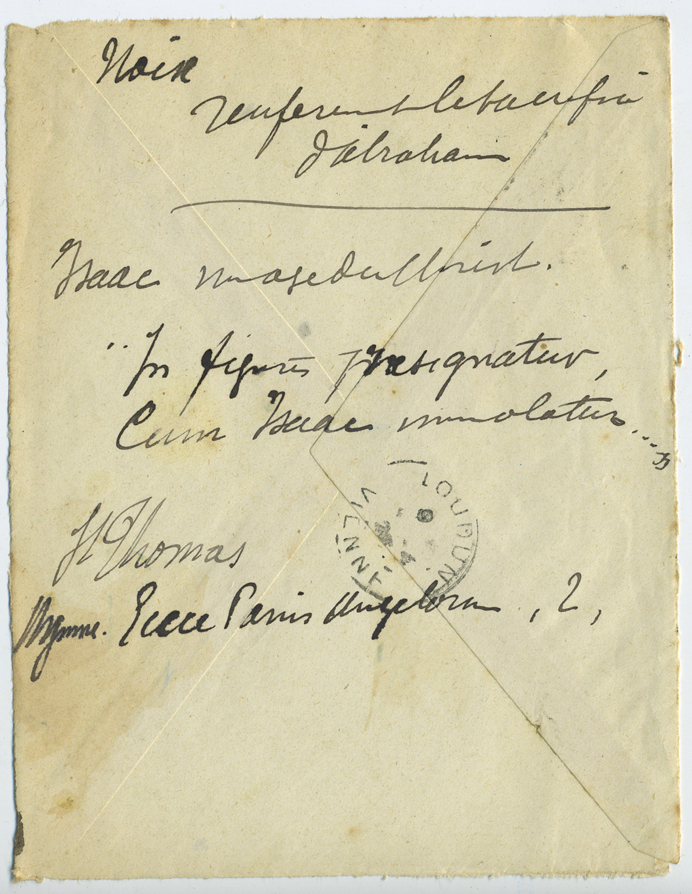 Noix
renfermant le sacrifice
d'Abraham
Isaac image du Christ.
"In figuris præsignatur,
Cum Isaac immolatur..."
St Thomas
Hymne. Ecce Panis Angelorum, 2,
LOUDUN
VIENNE